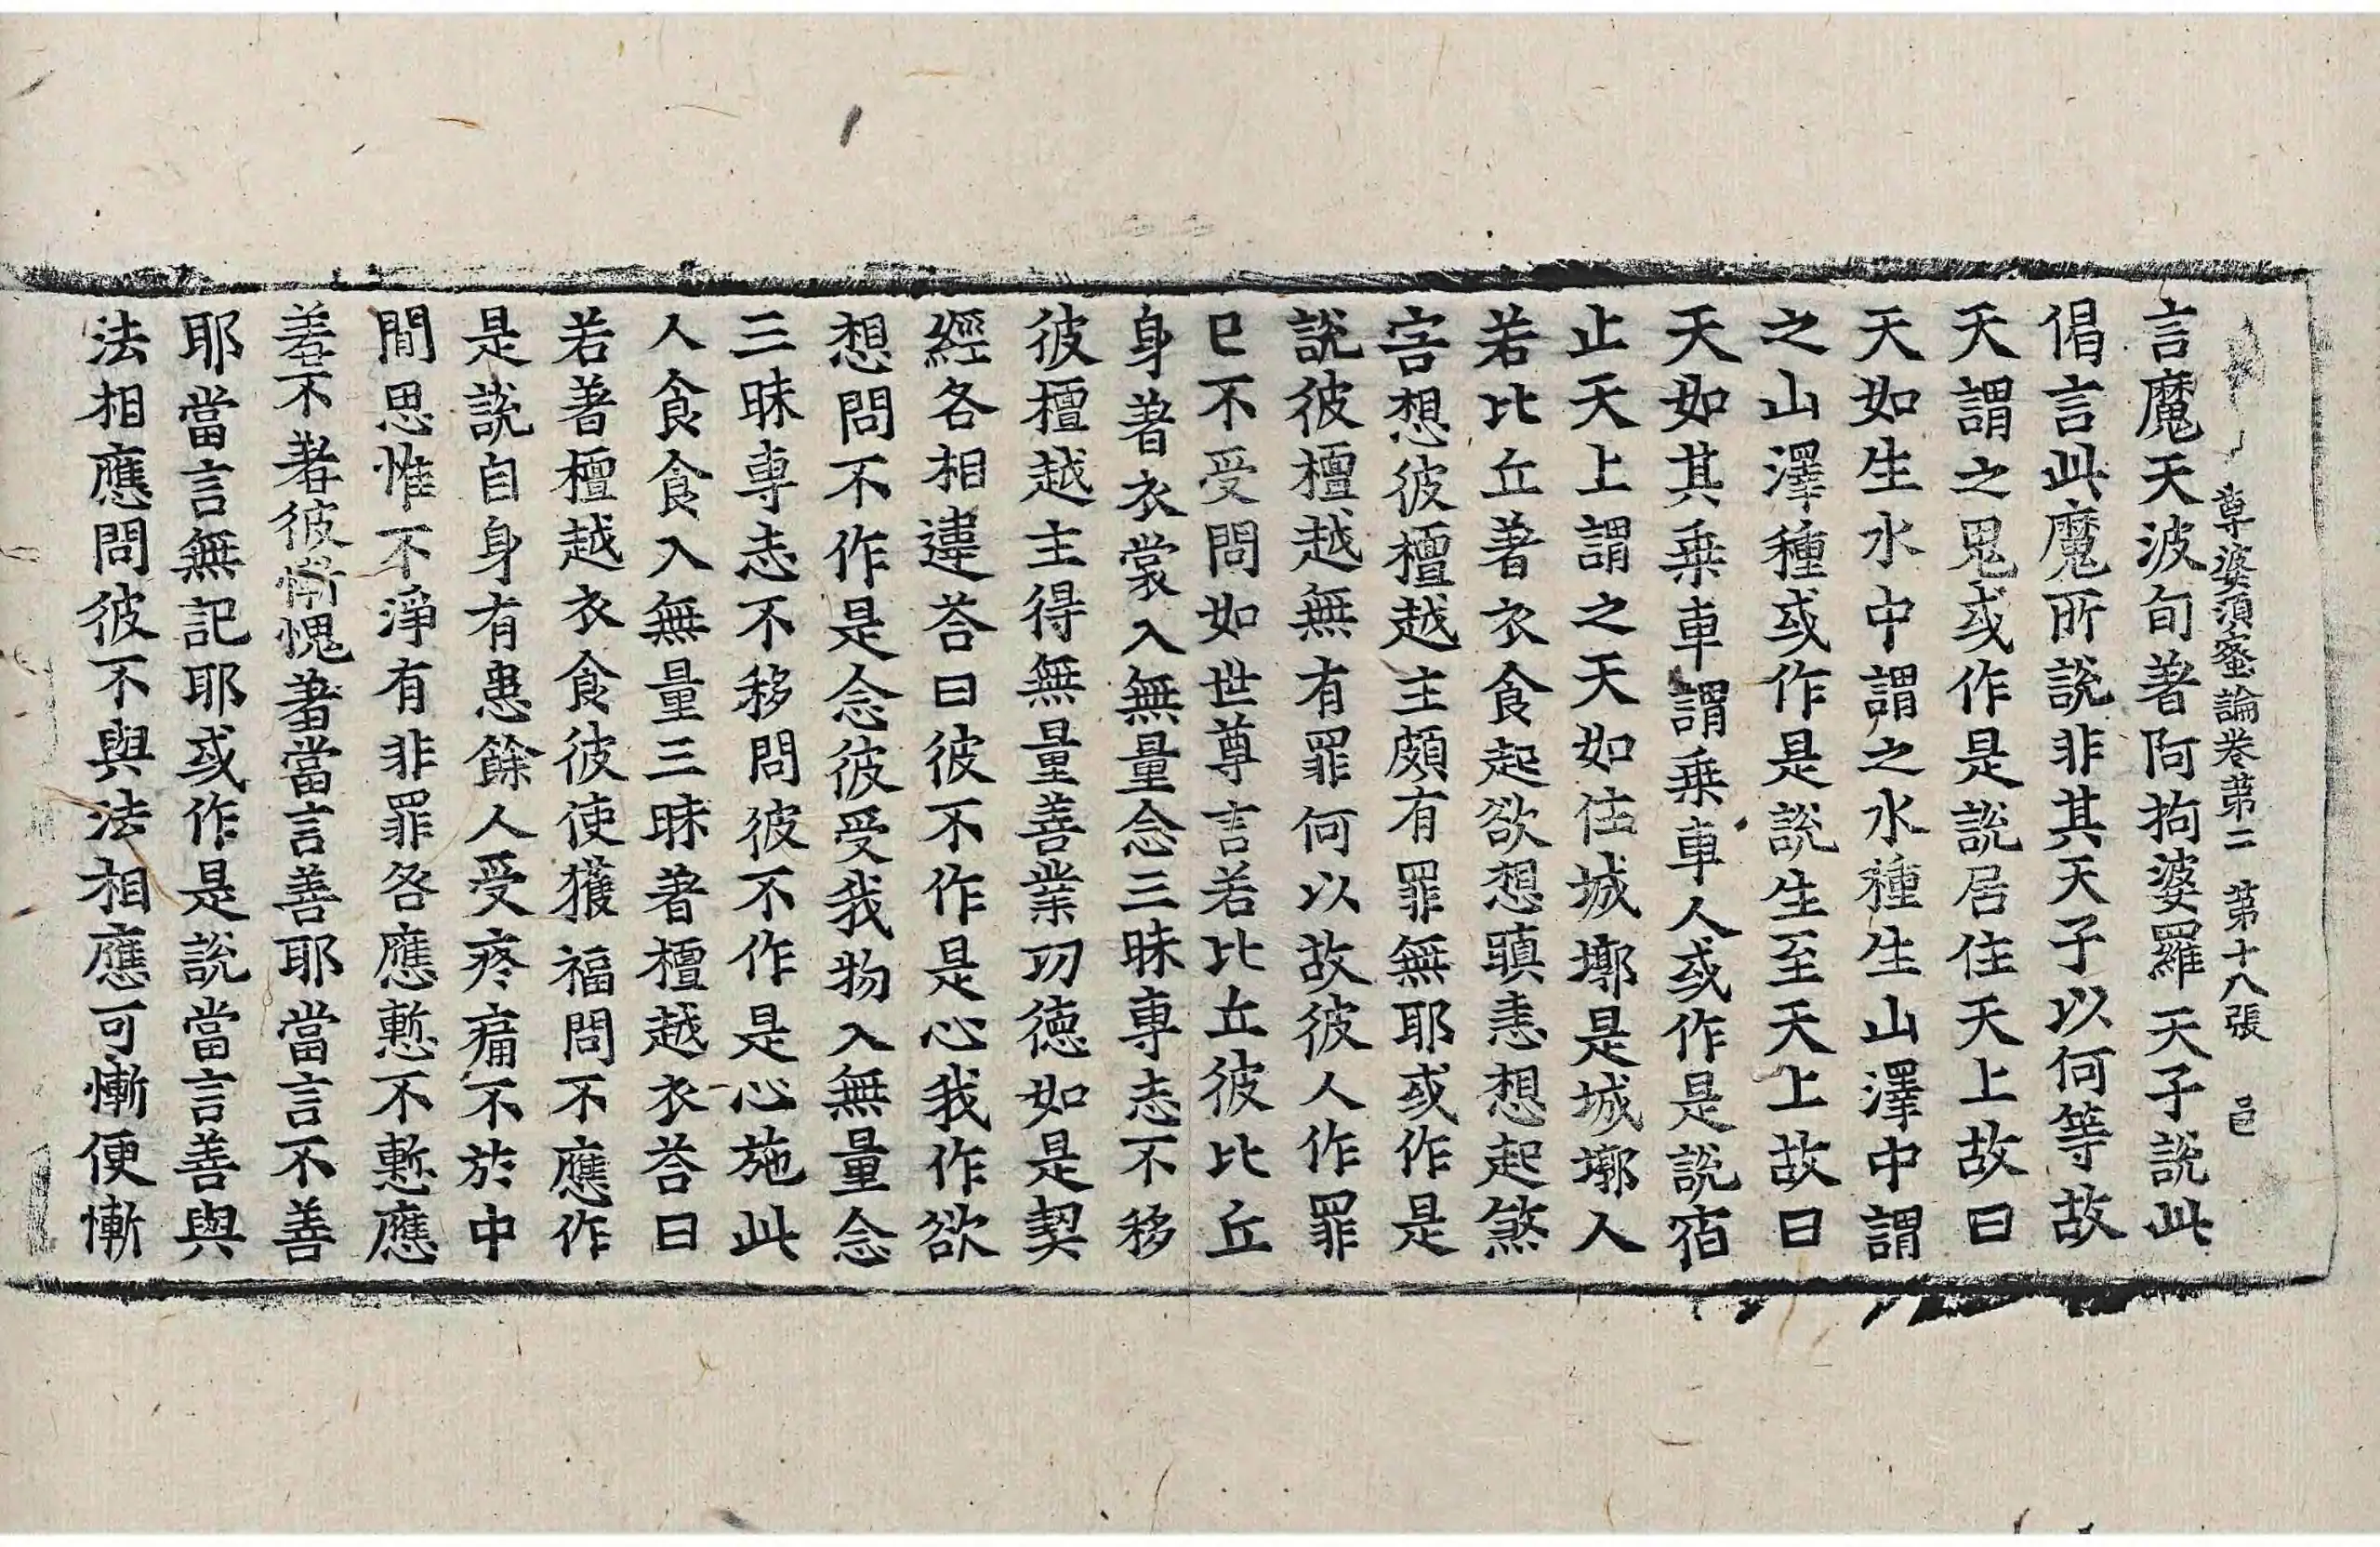 尊婆須蜜論卷苐二 苐十八張 邑
言魔天波旬著阿拘婆羅天子說此
偈言此魔所說非其天子以何等故
天謂之鬼或作是說居住天上故曰
天如生水中謂之水種生山澤中謂
之山澤種或作是說生至天上故曰
天如其乗車謂乗車人或作是說宿
止天上謂之天如住城墎是城墎人
若比丘著衣食起欲想瞋恚想起煞
害想彼檀越主頗有罪無耶或作是
說彼檀越無有罪何以故彼人作罪
已不受問如世尊言若比丘彼比丘
身著衣裳入無量念三昧専志不移
彼檀越主得無量善業功徳如是契
經各相違荅曰彼不作是心我作欲
想問不作是念彼受我物入無量念
三昧専志不移問彼不作是心施此
人食食入無量三昧著檀越衣荅曰
若著檀越衣食彼使獲福問不應作
是說自身有患餘人受疼痛不於中
間思惟不淨有非罪各應慙不慙應
羞不著彼慚愧著當言善耶當言不善
耶當言無記耶或作是說當言善與
法相應問彼不與法相應可慚便慚